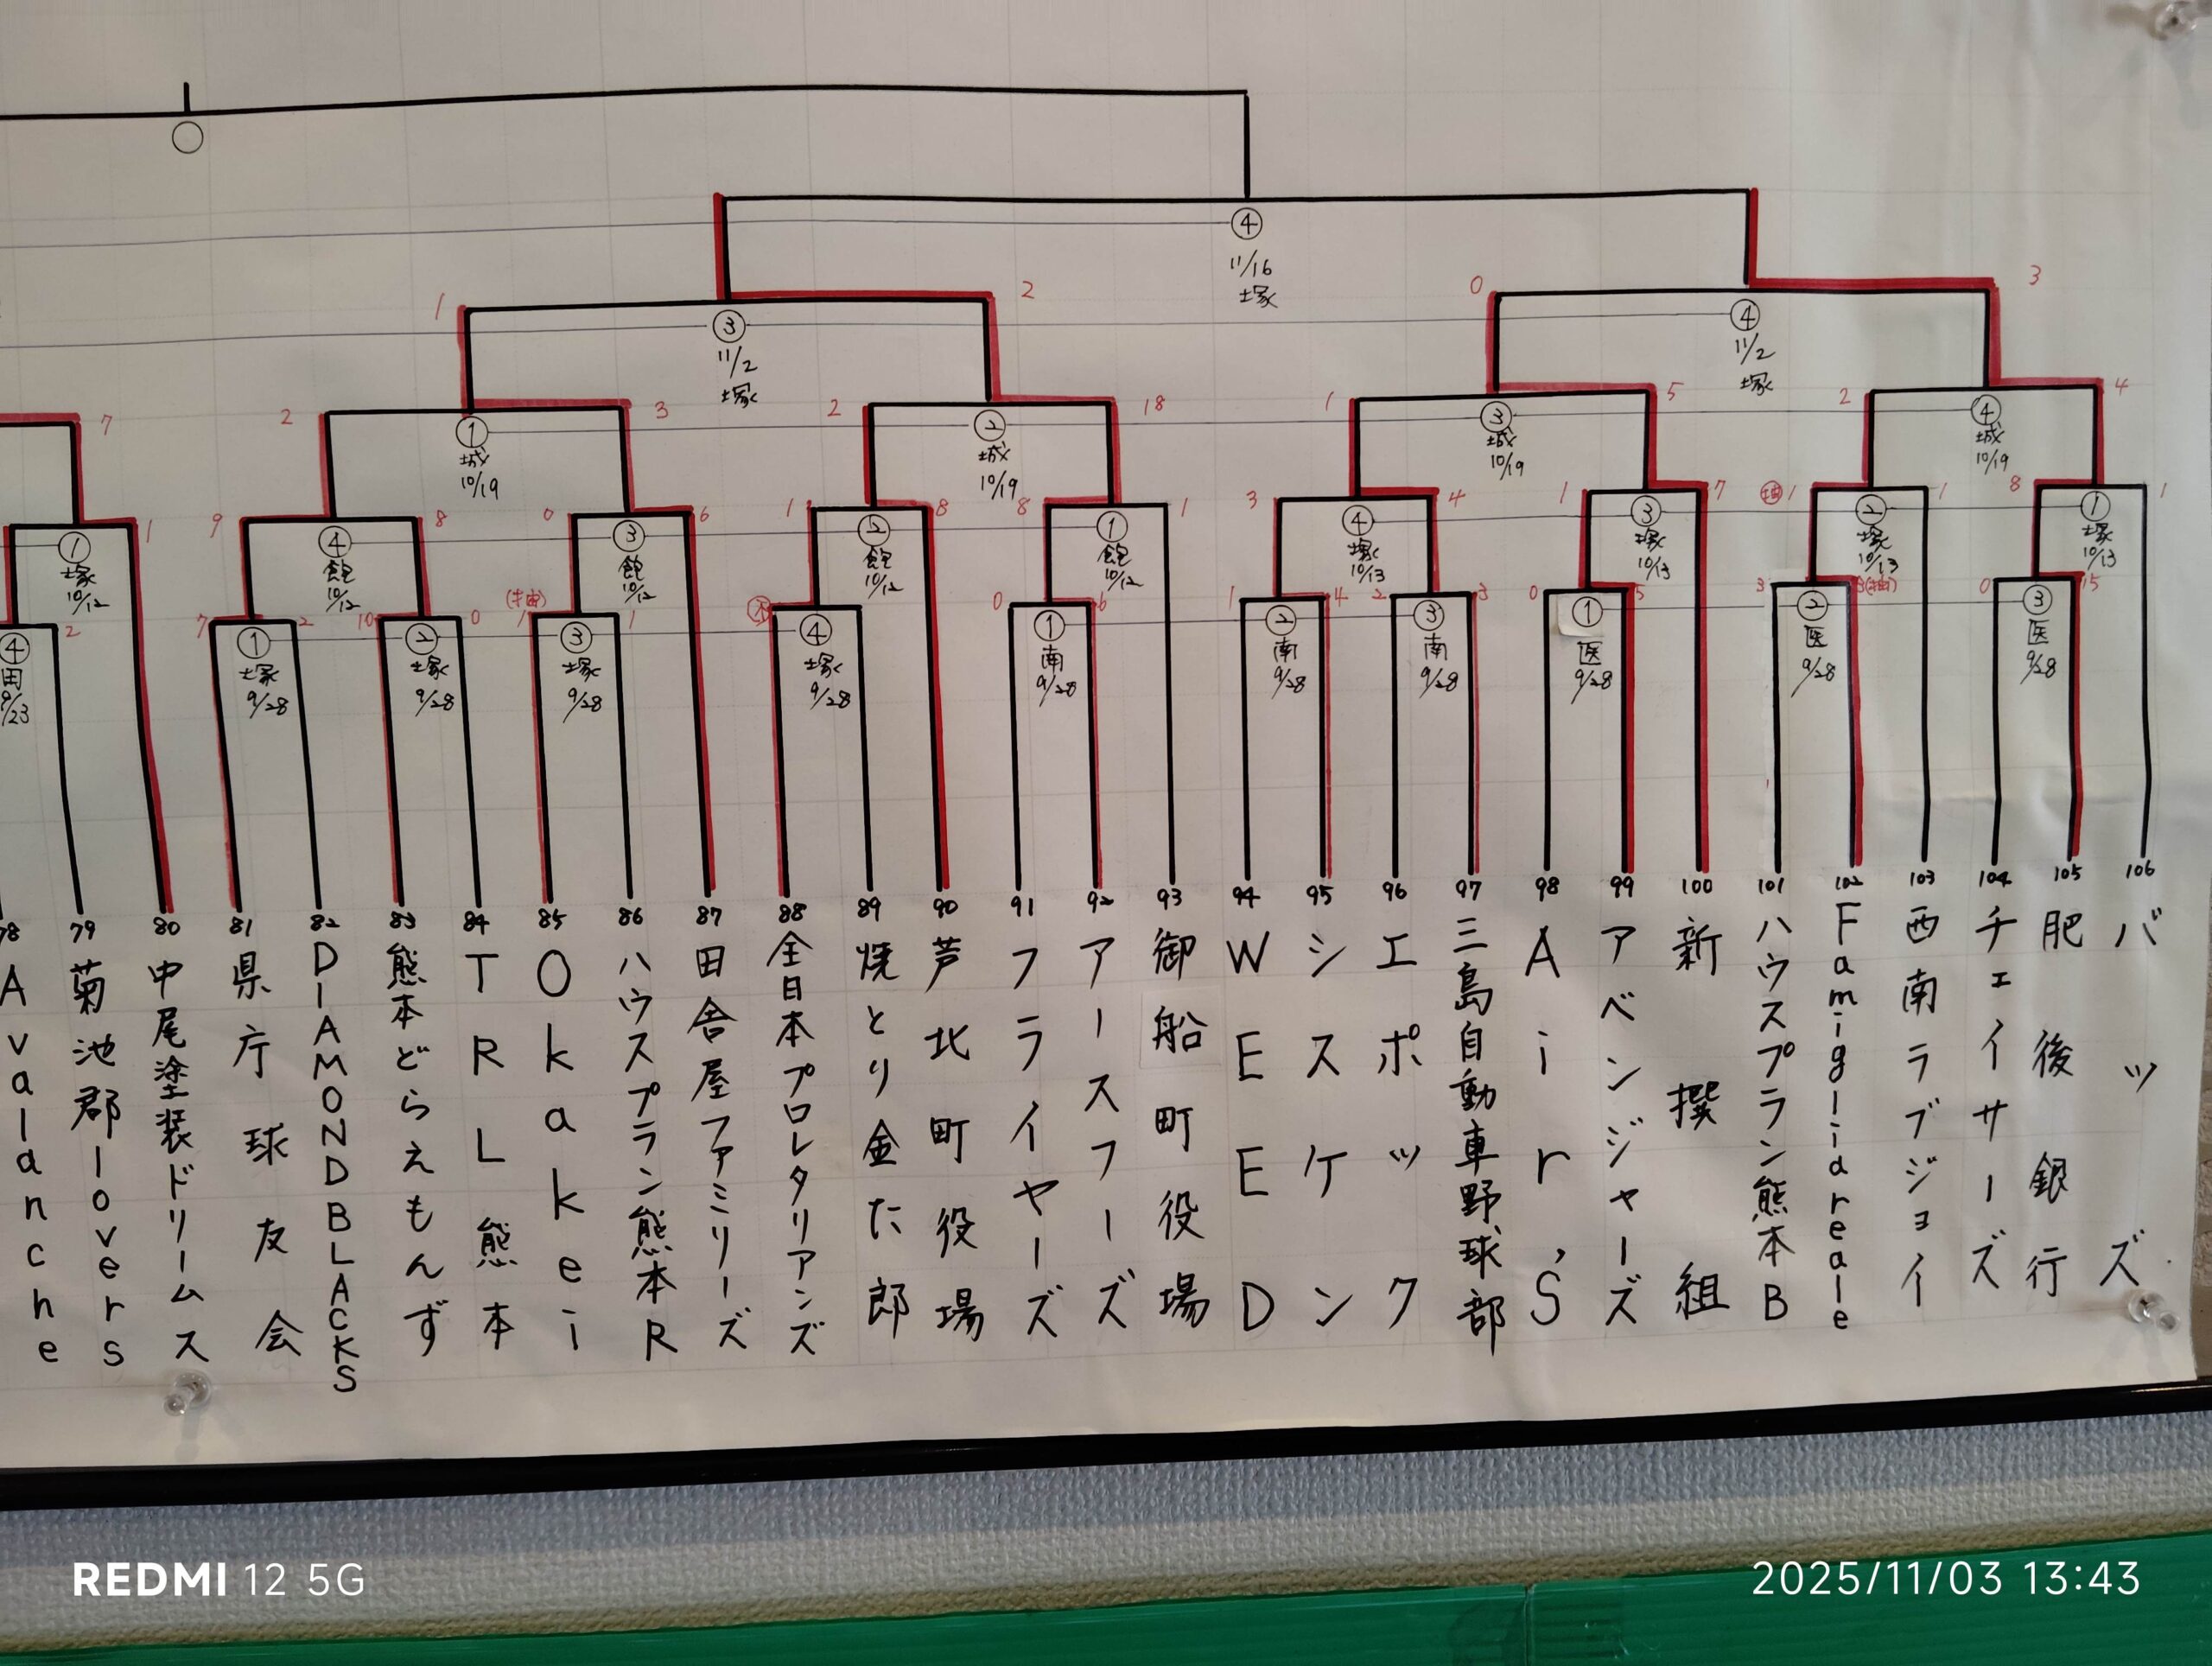 ④
11/16
塚
1
2
0
3
③
11/2
塚
④
11/2
塚
7
2
3
2
18
1
5
2
4
①
城
10/19
②
城
10/19
③
城
10/19
④
城
10/19
1
9
8
0
6
1
8
8
1
3
4
1
7
抽 1
1
8
1
①
塚
10/12
④
飽
10/12
③
飽
10/12
②
飽
10/12
①
飽
10/12
④
塚
10/13
③
塚
10/13
②
塚
10/13
①
塚
10/13
2
7
2
10
0
(抽)
1
1
不
0
6
1
4
2
3
0
5
3
3(抽)
0
15
④
田
9/23
①
塚
9/28
②
塚
9/28
③
塚
9/28
④
塚
9/28
①
南
9/28
②
南
9/28
③
南
9/28
①
医
9/28
②
医
9/28
③
医
9/28
78 Avalanche
79 菊池郡lovers
80 中尾塗装ドリームス
81 県庁球友会
82 DIAMOND BLACKS
83 熊本どらえもんず
84 TRL熊本
85 Okakei
86 ハウスプラン熊本R
87 田舎屋ファミリーズ
88 全日本プロレタリアンズ
89 焼とり金た郎
90 芦北町役場
91 フライヤーズ
92 アースフーズ
93 御船町役場
94 WEED
95 シスケン
96 エポック
97 三島自動車野球部
98 Air'S
99 アベンジャーズ
100 新撰組
101 ハウスプラン熊本B
102 Famiglia reale
103 西南ラブジョイ
104 チェイサーズ
105 肥後銀行
106 バッズ
REDMI 12 5G
2025/11/03 13:43